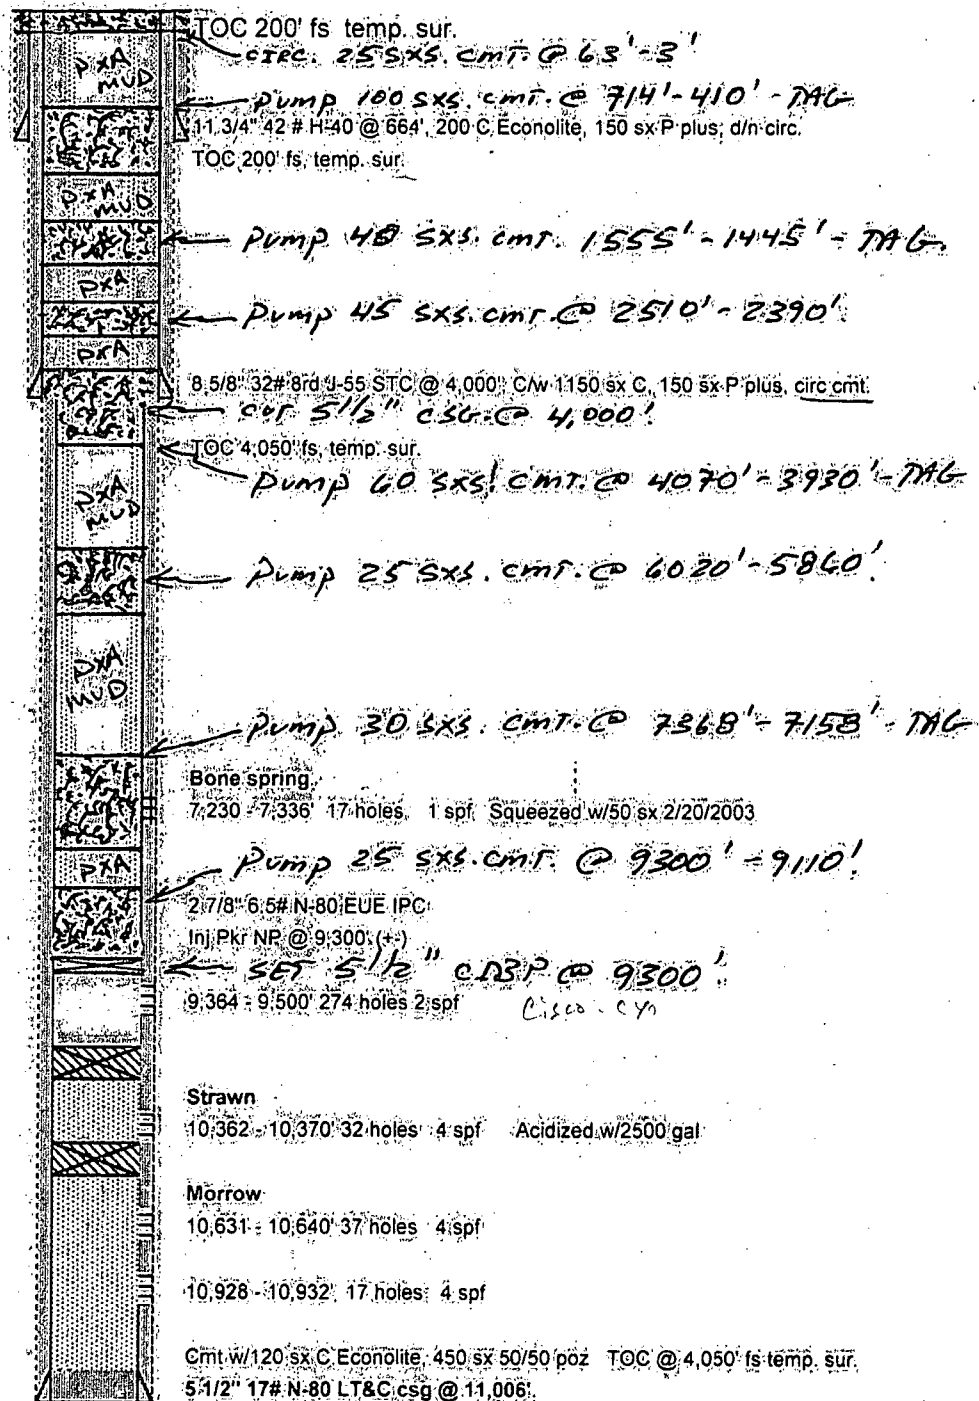 TOC 200' fs temp. sur.
CIRC. 25 SXS. CMT. @ 63'-3'
PXA MUD
Pump 100 SXS. CMT. @ 714'-410' - TAG
11 3/4" 42 # H-40 @ 664', 200 C Econolite, 150 sx P plus, d/n circ.
TOC 200' fs, temp. sur.
PXA MUD
Pump 40 SXS. CMT. 1555'-1445' - TAG.
PXA
Pump 45 SXS. CMT. @ 2510'-2390'.
PXA
8 5/8" 32# 8rd J-55 STC @ 4,000'; C/w 1150 sx C, 150 sx P plus, circ cmt.
CUT 5 1/2" CSG. @ 4,000'.
TOC 4,050' fs, temp. sur.
Pump 60 SXS. CMT. @ 4070'-3930' - TAG
PXA MUD
Pump 25 SXS. CMT. @ 6020'-5860'.
PXA MUD
Pump 30 SXS. CMT. @ 7368'-7158' - TAG
Bone spring
7,230 - 7,336' 17 holes, 1 spf Squeezed w/50 sx 2/20/2003
PXA
Pump 25 SXS. CMT. @ 9300'-9110'.
2 7/8" 6.5# N-80 EUE IPC
Inj Pkr NP @ 9,300' (+-)
SET 5 1/2" CIBP @ 9300'.
9,364 - 9,500' 274 holes 2 spf Cisco - Cyn
Strawn
10,362 - 10,370' 32 holes 4 spf Acidized w/2500 gal
Morrow
10,631 - 10,640' 37 holes 4 spf
10,928 - 10,932' 17 holes 4 spf
Cmt w/120 sx C Econolite, 450 sx 50/50 poz TOC @ 4,050' fs temp. sur.
5-1/2" 17# N-80 LT&C csg @ 11,006'.